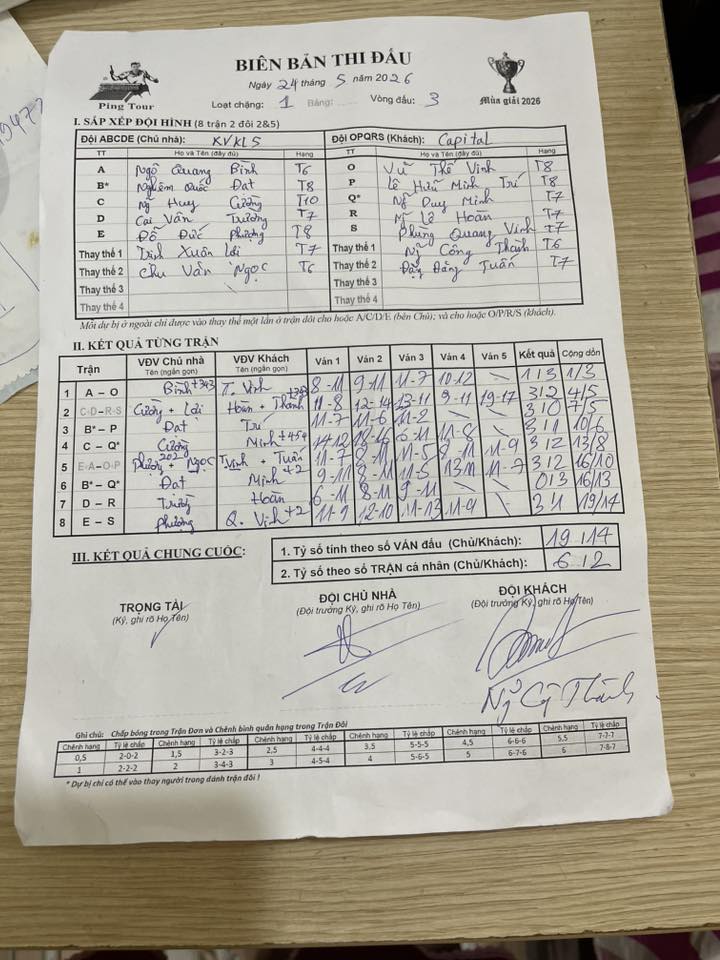 BIÊN BẢN THI ĐẤU
Ngày 24 tháng 5 năm 2026
Ping Tour
Loại chặng: 1 Bảng: ...... Vòng đấu: 3
Mùa giải 2026
I. SẮP XẾP ĐỘI HÌNH (8 trận 2 đôi 2&5)
Đội ABCDE (Chủ nhà): KVKLS
Đội OPQRS (Khách): Capital
TT Họ và Tên (đầy đủ) Hạng
A Ngô Quang Bình T6
B* Nghiêm Quốc Đạt T8
C Ng̃ Huy Cường T10
D Cai Văn Trường T7
E Đỗ Đức Phượng T8
Thay thế 1 Trịnh Xuân Lợi T7
Thay thế 2 Chu Văn Ngọc T6
Thay thế 3
Thay thế 4
TT Họ và Tên (đầy đủ) Hạng
O Vũ Thế Vinh T8
P Lê Hữu Minh Trí T8
Q* Ng̃ Duy Minh T7
R Ng̃ Lê Hoàn T7
S Phùng Quang Vinh T7
Thay thế 1 Ng̃ Công Thành T6
Thay thế 2 Đặng Đăng Tuấn T7
Thay thế 3
Thay thế 4
Mỗi dự bị ở ngoài chỉ được vào thay thế một lần ở trận đôi cho hoặc A/C/D/E (bên Chủ); và cho hoặc O/P/R/S (khách).
II. KẾT QUẢ TỪNG TRẬN
Trận VĐV Chủ nhà Tên (ngắn gọn) VĐV Khách Tên (ngắn gọn) Ván 1 Ván 2 Ván 3 Ván 4 Ván 5 Kết quả Cộng dồn
1 A – O Bình +343 T. Vinh 8-11 9-11 11-7 10-12 1/3 1/3
2 C-D-R-S Cường + Lợi Hoàn + Thành 11-8 12-14 13-11 9-11 19-17 3/2 4/5
3 B* – P Đạt Trí 11-7 11-6 11-2 3/0 7/5
4 C – Q* Cường Minh +454 14-12 18-16 6-11 11-8 3/1 10/6
5 E-A-O-P Phượng + Ngọc T Vinh + Tuấn 11-7 8-11 11-5 8-11 11-9 3/2 13/8
6 B* – Q* Đạt Minh +2 9-11 8-11 11-5 13-11 11-7 3/2 16/10
7 D – R Trường Hoàn 6-11 8-11 9-11 0/3 16/13
8 E – S Phượng Q. Vinh +2 11-9 12-10 11-13 11-9 3/1 19/14
III. KẾT QUẢ CHUNG CUỘC:
1. Tỷ số tính theo số VÁN đấu (Chủ/Khách): 19/14
2. Tỷ số theo số TRẬN cá nhân (Chủ/Khách): 6/2
TRỌNG TÀI
(Ký, ghi rõ Họ Tên)
ĐỘI CHỦ NHÀ
(Đội trưởng Ký, ghi rõ Họ Tên)
ĐỘI KHÁCH
(Đội trưởng Ký, ghi rõ Họ Tên)
Ghi chú: Chấp bóng trong Trận Đơn và Chênh bình quân hạng trong Trận Đôi
Chênh hạng Tỷ lệ chấp Chênh hạng Tỷ lệ chấp Chênh hạng Tỷ lệ chấp Chênh hạng Tỷ lệ chấp Chênh hạng Tỷ lệ chấp Chênh hạng Tỷ lệ chấp
0,5 2-0-2 1,5 3-2-3 2,5 4-4-4 3,5 5-5-5 4,5 6-6-6 5,5 7-7-7
1 2-2-2 2 3-4-3 3 4-5-4 4 5-6-5 5 6-7-6 6 7-8-7
* Dự bị chỉ có thể vào thay người trong đánh trận đôi !